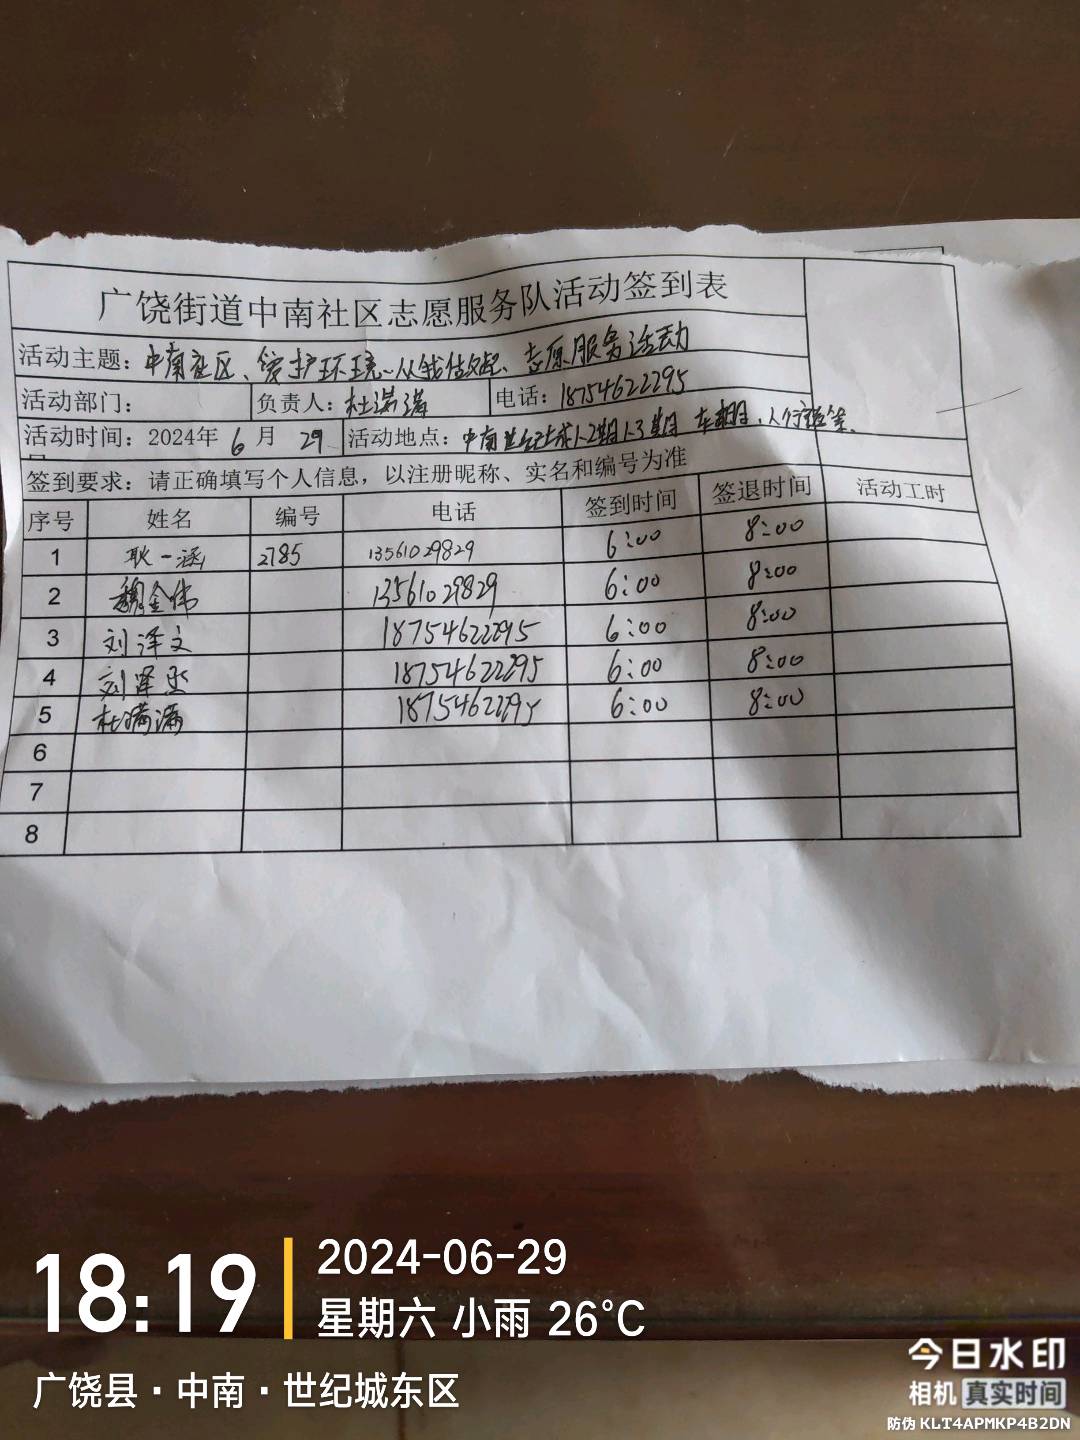 广饶街道中南社区志愿服务队活动签到表
活动主题：中南社区、爱护环境~从我做起、志愿服务活动
活动部门： 负责人：杜满满 电话：18754622295
活动时间：2024年 6 月 29 活动地点：中南世纪城
签到要求：请正确填写个人信息，以注册昵称、实名和编号为准
序号 姓名 编号 电话 签到时间 签退时间 活动工时
1 耿一涵 2785 13561029829 6:00 8:00
2 魏金伟 13561029829 6:00 8:00
3 刘泽文 18754622295 6:00 8:00
4 刘泽丞 18754622295 6:00 8:00
5 杜满满 18754622295 6:00 8:00
6
7
8
18:19
2024-06-29
星期六 小雨 26°C
广饶县·中南·世纪城东区
今日水印
相机 真实时间
防伪 KLT4APMKP4B2DN